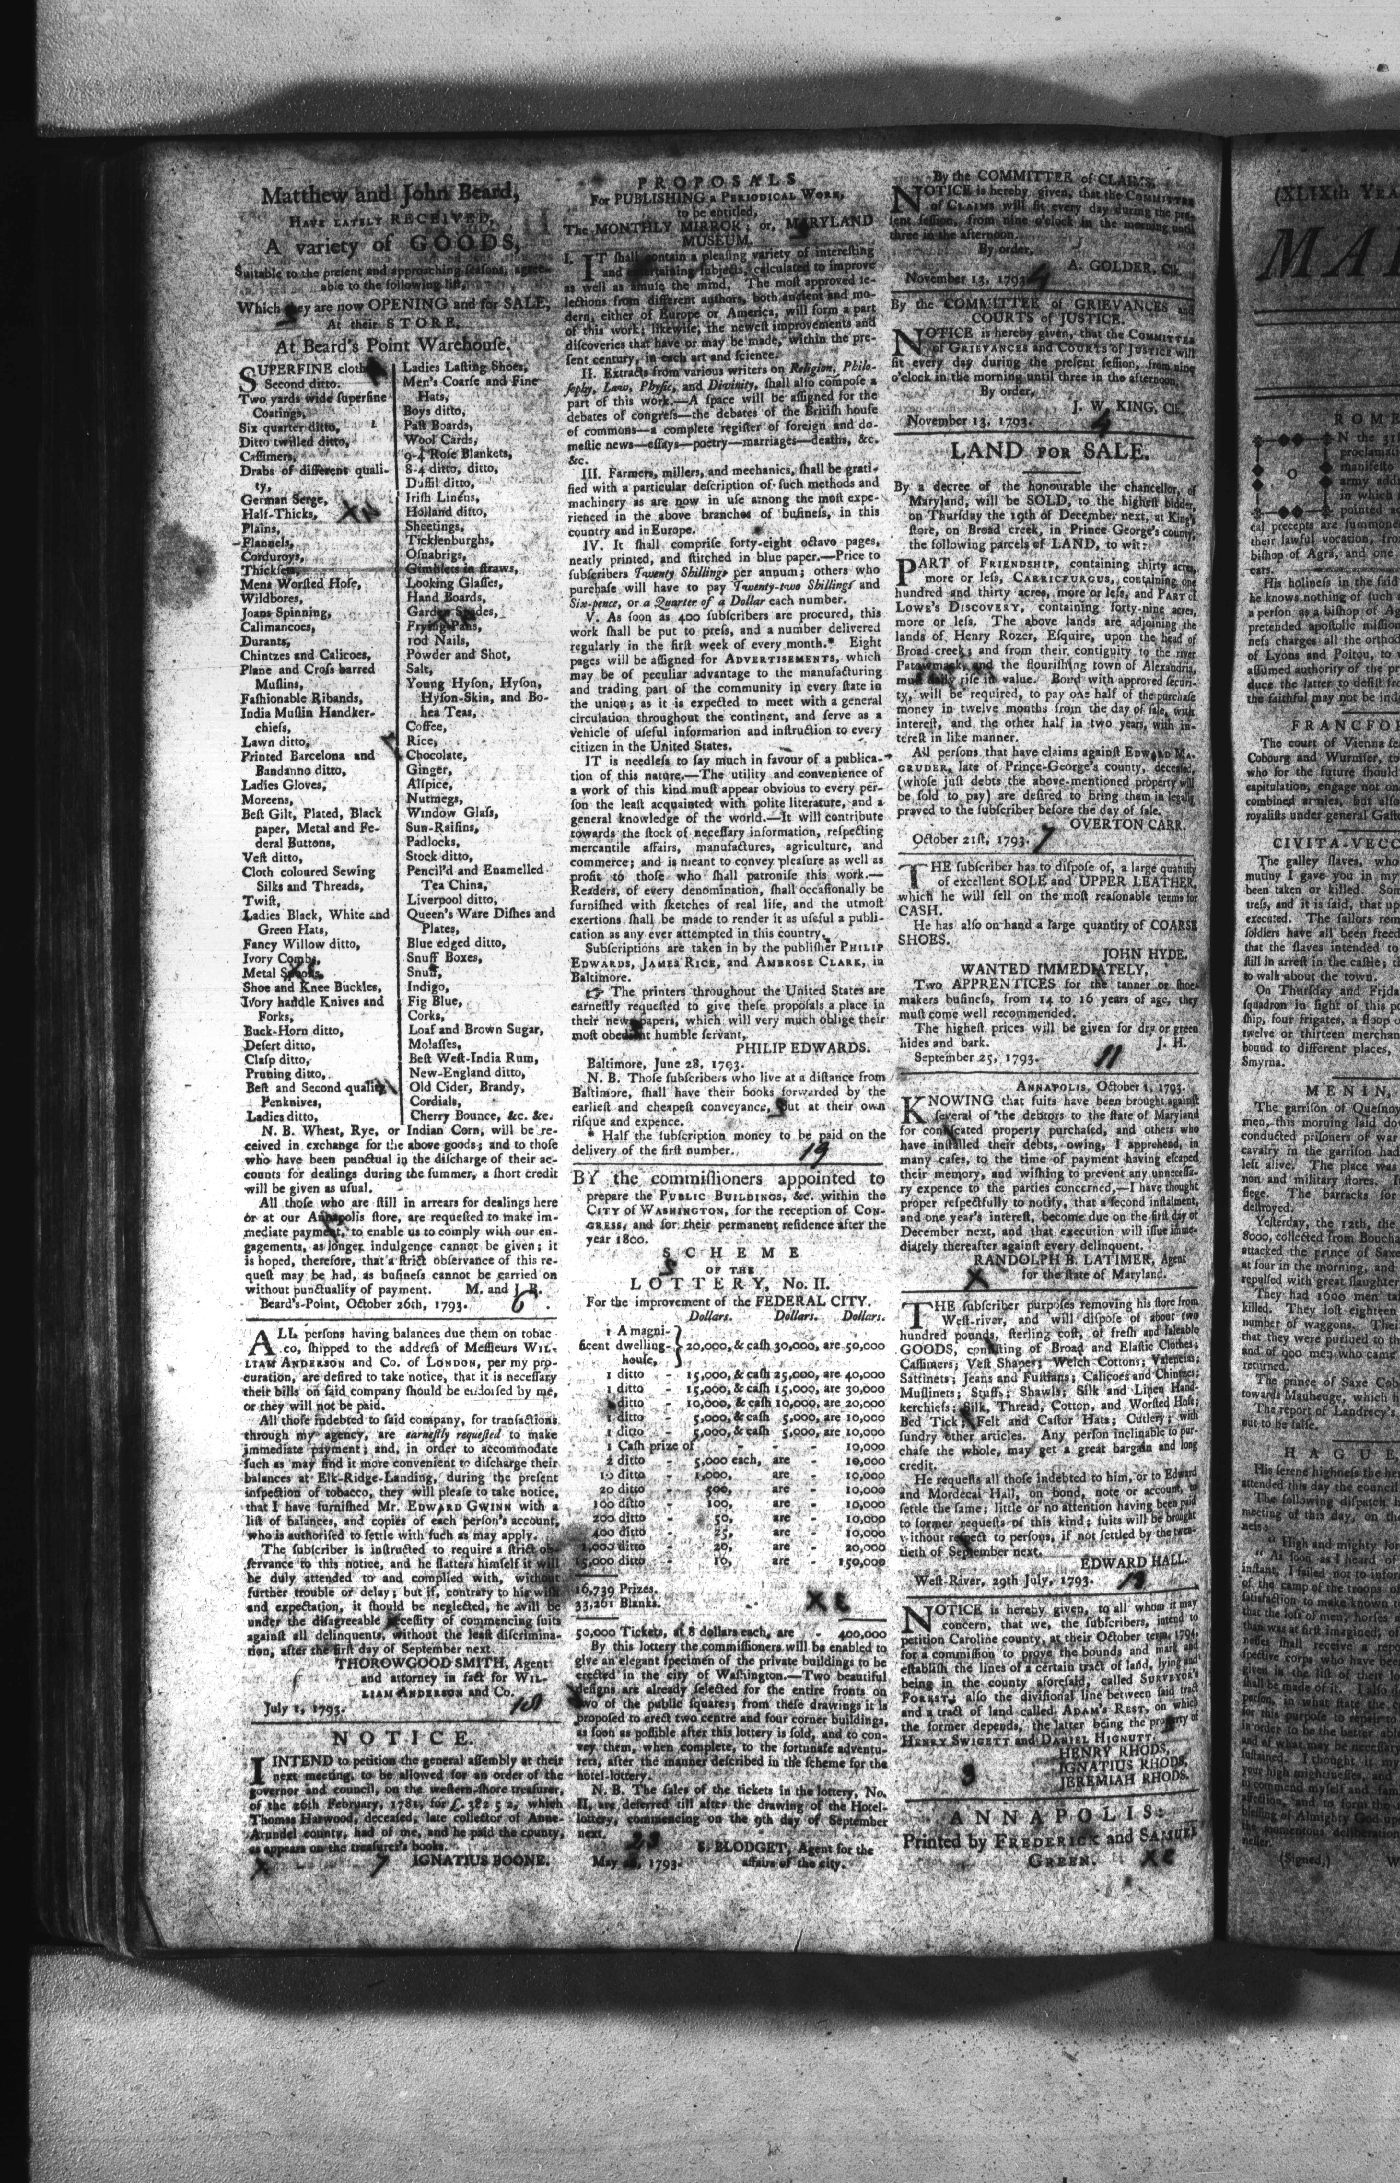 Matthew and John Beard,
HAVE LATELY RECEIVED,
A variety of GOODS,
Suitable to the present and approaching seasons, agree-
able to the following list,
Which they are now OPENING and for SALE,
At their STORE,
At Beard's Point Warehouse.
SUPERFINE cloth
Second ditto.
Two yards wide superfine
Coatings,
Six quarter ditto,
Ditto twilled ditto,
Cassimers,
Drabs of different quali-
ty,
German Serge,
Half-Thicks,
Plains,
Flannels,
Corduroys,
Thicksets,
Mens Worsted Hose,
Wildbores,
Joans Spinning,
Calimancoes,
Durants,
Chintzes and Calicoes,
Plane and Cross barred
Muslins,
Fashionable Ribands,
India Muslin Handker-
chiefs,
Lawn ditto,
Printed Barcelona and
Bandanno ditto,
Ladies Gloves,
Moreens,
Best Gilt, Plated, Black
paper, Metal and Fe-
deral Buttons,
Vest ditto,
Cloth coloured Sewing
Silks and Threads,
Twist,
Ladies Black, White and
Green Hats,
Fancy Willow ditto,
Ivory Combs,
Metal Spoons,
Shoe and Knee Buckles,
Ivory handle Knives and
Forks,
Buck-Horn ditto,
Desert ditto,
Clasp ditto,
Pruning ditto,
Best and Second quality
Penknives,
Ladies ditto,
Ladies Lasting Shoes,
Men's Coarse and Fine
Hats,
Boys ditto,
Past Boards,
Wool Cards,
9-4 Rose Blankets,
8-4 ditto, ditto,
Duffil ditto,
Irish Linens,
Holland ditto,
Sheetings,
Ticklenburghs,
Osnabrigs,
Gimblets in straws,
Looking Glasses,
Hand Boards,
Garden Spades,
Frying Pans,
10d Nails,
Powder and Shot,
Salt,
Young Hyson, Hyson,
Hyson-Skin, and Bo-
hea Teas,
Coffee,
Rice,
Chocolate,
Ginger,
Allspice,
Nutmegs,
Window Glass,
Sun-Raisins,
Padlocks,
Stock ditto,
Pencil'd and Enamelled
Tea China,
Liverpool ditto,
Queen's Ware Dishes and
Plates,
Blue edged ditto,
Snuff Boxes,
Snuff,
Indigo,
Fig Blue,
Corks,
Loaf and Brown Sugar,
Molasses,
Best West-India Rum,
New-England ditto,
Old Cider, Brandy,
Cordials,
Cherry Bounce, &c. &c.
N. B. Wheat, Rye, or Indian Corn, will be re-
ceived in exchange for the above goods; and to those
who have been punctual in the discharge of their ac-
counts for dealings during the summer, a short credit
will be given as usual.
All those who are still in arrears for dealings here
or at our Annapolis store, are requested to make im-
mediate payment, to enable us to comply with our en-
gagements, as longer indulgence cannot be given; it
is hoped, therefore, that a strict observance of this re-
quest may be had, as business cannot be carried on
without punctuality of payment. M. and J. B.
Beard's-Point, October 26th, 1793. 6
ALL persons having balances due them on tobac-
co, shipped to the address of Messieurs WIL-
LIAM ANDERSON and Co. of LONDON, per my pro-
curation, are desired to take notice, that it is necessary
their bills on said company should be endorsed by me,
or they will not be paid.
All those indebted to said company, for transactions
through my agency, are earnestly requested to make
immediate payment; and, in order to accommodate
such as may find it more convenient to discharge their
balances at Elk-Ridge-Landing, during the present
inspection of tobacco, they will please to take notice,
that I have furnished Mr. EDWARD GWINN with a
list of balances, and copies of each person's account,
who is authorised to settle with such as may apply.
The subscriber is instructed to require a strict ob-
servance to this notice, and he flatters himself it will
be duly attended to and complied with, without
further trouble or delay; but if, contrary to his wish
and expectation, it should be neglected, he will be
under the disagreeable necessity of commencing suits
against all delinquents, without the least discrimina-
tion, after the first day of September next.
THOROWGOOD SMITH, Agent
and attorney in fact for WIL-
LIAM ANDERSON and Co.
July 1, 1793. 18
NOTICE.
I INTEND to petition the general assembly at their
next meeting, to be allowed for an order of the
governor and council, on the western-shore treasurer,
of the 26th February, 1781, for £. 282 5 2, which
Thomas Harwood, deceased, late collector of Anne-
Arundel county, had of me, and he paid the county,
as appears on the treasurer's books.
X 7 IGNATIUS BOONE.
PROPOSALS
For PUBLISHING a PERIODICAL WORK,
to be entitled,
The MONTHLY MIRROR; or, MARYLAND
MUSEUM.
I. IT shall contain a pleasing variety of interesting
and entertaining subjects, calculated to improve
as well as amuse the mind. The most approved se-
lections from different authors, both ancient and mo-
dern, either of Europe or America, will form a part
of this work; likewise, the newest improvements and
discoveries that have or may be made, within the pre-
sent century, in each art and science.
II. Extracts from various writers on Religion, Philo-
sophy, Law, Physic, and Divinity, shall also compose a
part of this work.—A space will be assigned for the
debates of congress—the debates of the British house
of commons—a complete register of foreign and do-
mestic news—essays—poetry—marriages—deaths, &c.
&c.
III. Farmers, millers, and mechanics, shall be grati-
fied with a particular description of such methods and
machinery as are now in use among the most expe-
rienced in the above branches of business, in this
country and in Europe.
IV. It shall comprise forty-eight octavo pages,
neatly printed, and stitched in blue paper.—Price to
subscribers Twenty Shillings per annum; others who
purchase will have to pay Twenty-two Shillings and
Six-pence, or a Quarter of a Dollar each number.
V. As soon as 400 subscribers are procured, this
work shall be put to press, and a number delivered
regularly in the first week of every month.* Eight
pages will be assigned for ADVERTISEMENTS, which
may be of peculiar advantage to the manufacturing
and trading part of the community in every state in
the union; as it is expected to meet with a general
circulation throughout the continent, and serve as a
vehicle of useful information and instruction to every
citizen in the United States.
IT is needless to say much in favour of a publica-
tion of this nature.—The utility and convenience of
a work of this kind must appear obvious to every per-
son the least acquainted with polite literature, and a
general knowledge of the world.—It will contribute
towards the stock of necessary information, respecting
mercantile affairs, manufactures, agriculture, and
commerce; and is meant to convey pleasure as well as
profit to those who shall patronise this work.—
Readers, of every denomination, shall occasionally be
furnished with sketches of real life, and the utmost
exertions shall be made to render it as useful a publi-
cation as any ever attempted in this country.
Subscriptions are taken in by the publisher PHILIP
EDWARDS, JAMES RICE, and AMBROSE CLARK, in
Baltimore.
☞ The printers throughout the United States are
earnestly requested to give these proposals a place in
their newspapers, which will very much oblige their
most obedient humble servant,
PHILIP EDWARDS.
Baltimore, June 28, 1793.
N. B. Those subscribers who live at a distance from
Baltimore, shall have their books forwarded by the
earliest and cheapest conveyance, but at their own
risque and expence.
* Half the subscription money to be paid on the
delivery of the first number. 19
BY the commissioners appointed to
prepare the PUBLIC BUILDINGS, &c. within the
CITY of WASHINGTON, for the reception of CON-
GRESS, and for their permanent residence after the
year 1800.
SCHEME
OF THE
LOTTERY, No. II.
For the improvement of the FEDERAL CITY.
Dollars. Dollars. Dollars.
1 A magni-
ficent dwelling- } 20,000, & cash 30,000, are 50,000
house,
1 ditto - 15,000, & cash 25,000, are 40,000
1 ditto - 15,000, & cash 15,000, are 30,000
1 ditto - 10,000, & cash 10,000, are 20,000
1 ditto - 5,000, & cash 5,000, are 10,000
1 ditto - 5,000, & cash 5,000, are 10,000
1 Cash prize of - - - 10,000
2 ditto - 5,000 each, are - 10,000
10 ditto - 1,000, are - 10,000
20 ditto - 500, are - 10,000
100 ditto - 100, are - 10,000
200 ditto - 50, are - 10,000
400 ditto - 25, are - 10,000
1,000 ditto - 20, are - 20,000
15,000 ditto - 10, are - 150,000
16,739 Prizes.
33,261 Blanks.
50,000 Tickets, at 8 dollars each, are - 400,000
By this lottery the commissioners will be enabled to
give an elegant specimen of the private buildings to be
erected in the city of Washington.—Two beautiful
designs are already selected for the entire fronts on
two of the public squares; from these drawings it is
proposed to erect two centre and four corner buildings,
as soon as possible after this lottery is sold, and to con-
vey them, when complete, to the fortunate adventu-
rers, after the manner described in the scheme for the
hotel-lottery.
N. B. The sales of the tickets in the lottery, No.
II, are deferred till after the drawing of the Hotel-
lottery, commencing on the 9th day of September
next. 23
S. BLODGET, Agent for the
May 1793. affairs of the city.
By the COMMITTEE of CLAIMS,
NOTICE is hereby given, that the COMMITTEE
of CLAIMS will sit every day during the pre-
sent session, from nine o'clock in the morning until
three in the afternoon.
By order,
A. GOLDER, Clk.
November 13, 1793. 4
By the COMMITTEE of GRIEVANCES and
COURTS of JUSTICE.
NOTICE is hereby given, that the COMMITTEE
of GRIEVANCES and COURTS of JUSTICE will
sit every day during the present session, from nine
o'clock in the morning until three in the afternoon,
By order,
J. W. KING, Clk.
November 13, 1793. 4
LAND FOR SALE.
By a decree of the honourable the chancellor, of
Maryland, will be SOLD, to the highest bidder,
on Thursday the 19th of December next, at King's
store, on Broad creek, in Prince George's county,
the following parcels of LAND, to wit:
PART of FRIENDSHIP, containing thirty acres,
more or less, CARRICFURGUS, containing one
hundred and thirty acres, more or less, and PART of
LOWE'S DISCOVERY, containing forty-nine acres,
more or less. The above lands are adjoining the
lands of Henry Rozer, Esquire, upon the head of
Broad-creek; and from their contiguity to the river
Patowmack, and the flourishing town of Alexandria,
must daily rise in value. Bond with approved securi-
ty, will be required, to pay one half of the purchase
money in twelve months from the day of sale, with
interest, and the other half in two years, with in-
terest in like manner.
All persons that have claims against EDWARD MA-
GRUDER, late of Prince-George's county, deceased,
(whose just debts the above-mentioned property will
be sold to pay) are desired to bring them in legally
proved to the subscriber before the day of sale.
OVERTON CARR.
October 21st, 1793. 7
THE subscriber has to dispose of, a large quantity
of excellent SOLE and UPPER LEATHER,
which he will sell on the most reasonable terms for
CASH.
He has also on hand a large quantity of COARSE
SHOES.
JOHN HYDE.
WANTED IMMEDIATELY,
Two APPRENTICES for the tanner or shoe-
makers business, from 14 to 16 years of age, they
must come well recommended.
The highest prices will be given for dry or green
hides and bark. J. H.
September 25, 1793. 11
ANNAPOLIS, October 1, 1793.
KNOWING that suits have been brought against
several of the debtors to the state of Maryland
for confiscated property purchased, and others who
have installed their debts, owing, I apprehend, in
many cases, to the time of payment having escaped
their memory, and wishing to prevent any unnecessa-
ry expence to the parties concerned,—I have thought
proper respectfully to notify, that a second instalment,
and one year's interest, become due on the first day of
December next, and that execution will issue imme-
diately thereafter against every delinquent.
RANDOLPH B. LATIMER, Agent
for the state of Maryland.
X
THE subscriber purposes removing his store from
West-river, and will dispose of about two
hundred pounds, sterling cost, of fresh and saleable
GOODS, consisting of Broad and Elastic Clothes;
Cassimers; Vest Shapes; Welch Cottons; Valencias;
Sattinets; Jeans and Fustians; Calicoes and Chintzes;
Muslinets; Stuffs; Shawls; Silk and Linen Hand-
kerchiefs; Silk, Thread, Cotton, and Worsted Hose;
Bed Tick; Felt and Castor Hats; Cutlery; with
sundry other articles. Any person inclinable to pur-
chase the whole, may get a great bargain and long
credit.
He requests all those indebted to him, or to Edward
and Mordecai Hall, on bond, note or account, to
settle the same; little or no attention having been paid
to former requests of this kind; suits will be brought
without respect to persons, if not settled by the twen-
tieth of September next.
EDWARD HALL.
West-River, 29th July, 1793. 13
NOTICE is hereby given, to all whom it may
concern, that we, the subscribers, intend to
petition Caroline county, at their October term, 1794,
for a commission to prove the bounds and mark and
establish the lines of a certain tract of land, lying and
being in the county aforesaid, called SURVEYOR'S
FOREST; also the divisional line between said tract
and a tract of land called ADAM'S REST, on which
the former depends, the latter being the property of
HENRY SWIGETT and DANIEL HIGNUTT.
HENRY RHODS,
IGNATIUS RHODS,
JEREMIAH RHODS.
ANNAPOLIS:
Printed by FREDERICK and SAMUEL
GREEN.
(XLIXth YEA
MA
ROM
FRANCFO
The court of Vienna
Cobourg and Wurmser, to
who for the future should
capitulation, engage not
combined armies, but all
royalists under general Gaston
CIVITA-VECC
The galley slaves, who
mutiny I gave you in my
been taken or killed. Some
tress, and it is said, that up
executed. The sailors rem
soldiers have all been freed
that the slaves intended to
still in arrest in the castle; th
to walk about the town.
On Thursday and Frida
squadron in sight of this po
ship, four frigates, a sloop o
twelve or thirteen merchan
bound to different places,
Smyrna.
MENIN,
The garrison of Quesnoy
men, this morning laid do
conducted prisoners of war
cavalry in the garrison had
left alive. The place was
non and military stores,
siege. The barracks for
destroyed.
Yesterday, the 12th, the
8000, collected from Boucha
attacked the prince of Saxe
at four in the morning, and
repulsed with great slaughter
They had 1600 men
killed. They lost eighteen
number of waggons. The
that they were pursued to
and of 900 men who came
returned.
The prince of Saxe Cob
towards Maubeuge, which
The report of Landrecy's
out to be false.
HAGUE,
(Signed,)